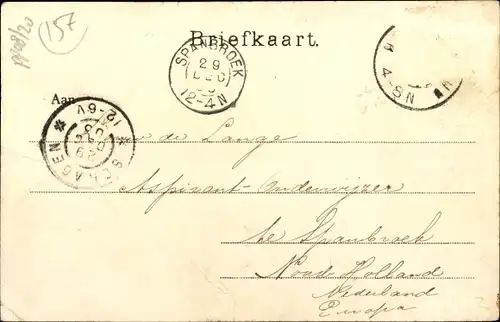 157
Briefkaart.
SPANBROEK
29
DEC
12-4N
4-8N
Aan
12-6V
SCHAGEN
29
de Lange
Aspirant-Onderwijzer
te Spanbroek
Noord Holland
Nederland
Europa